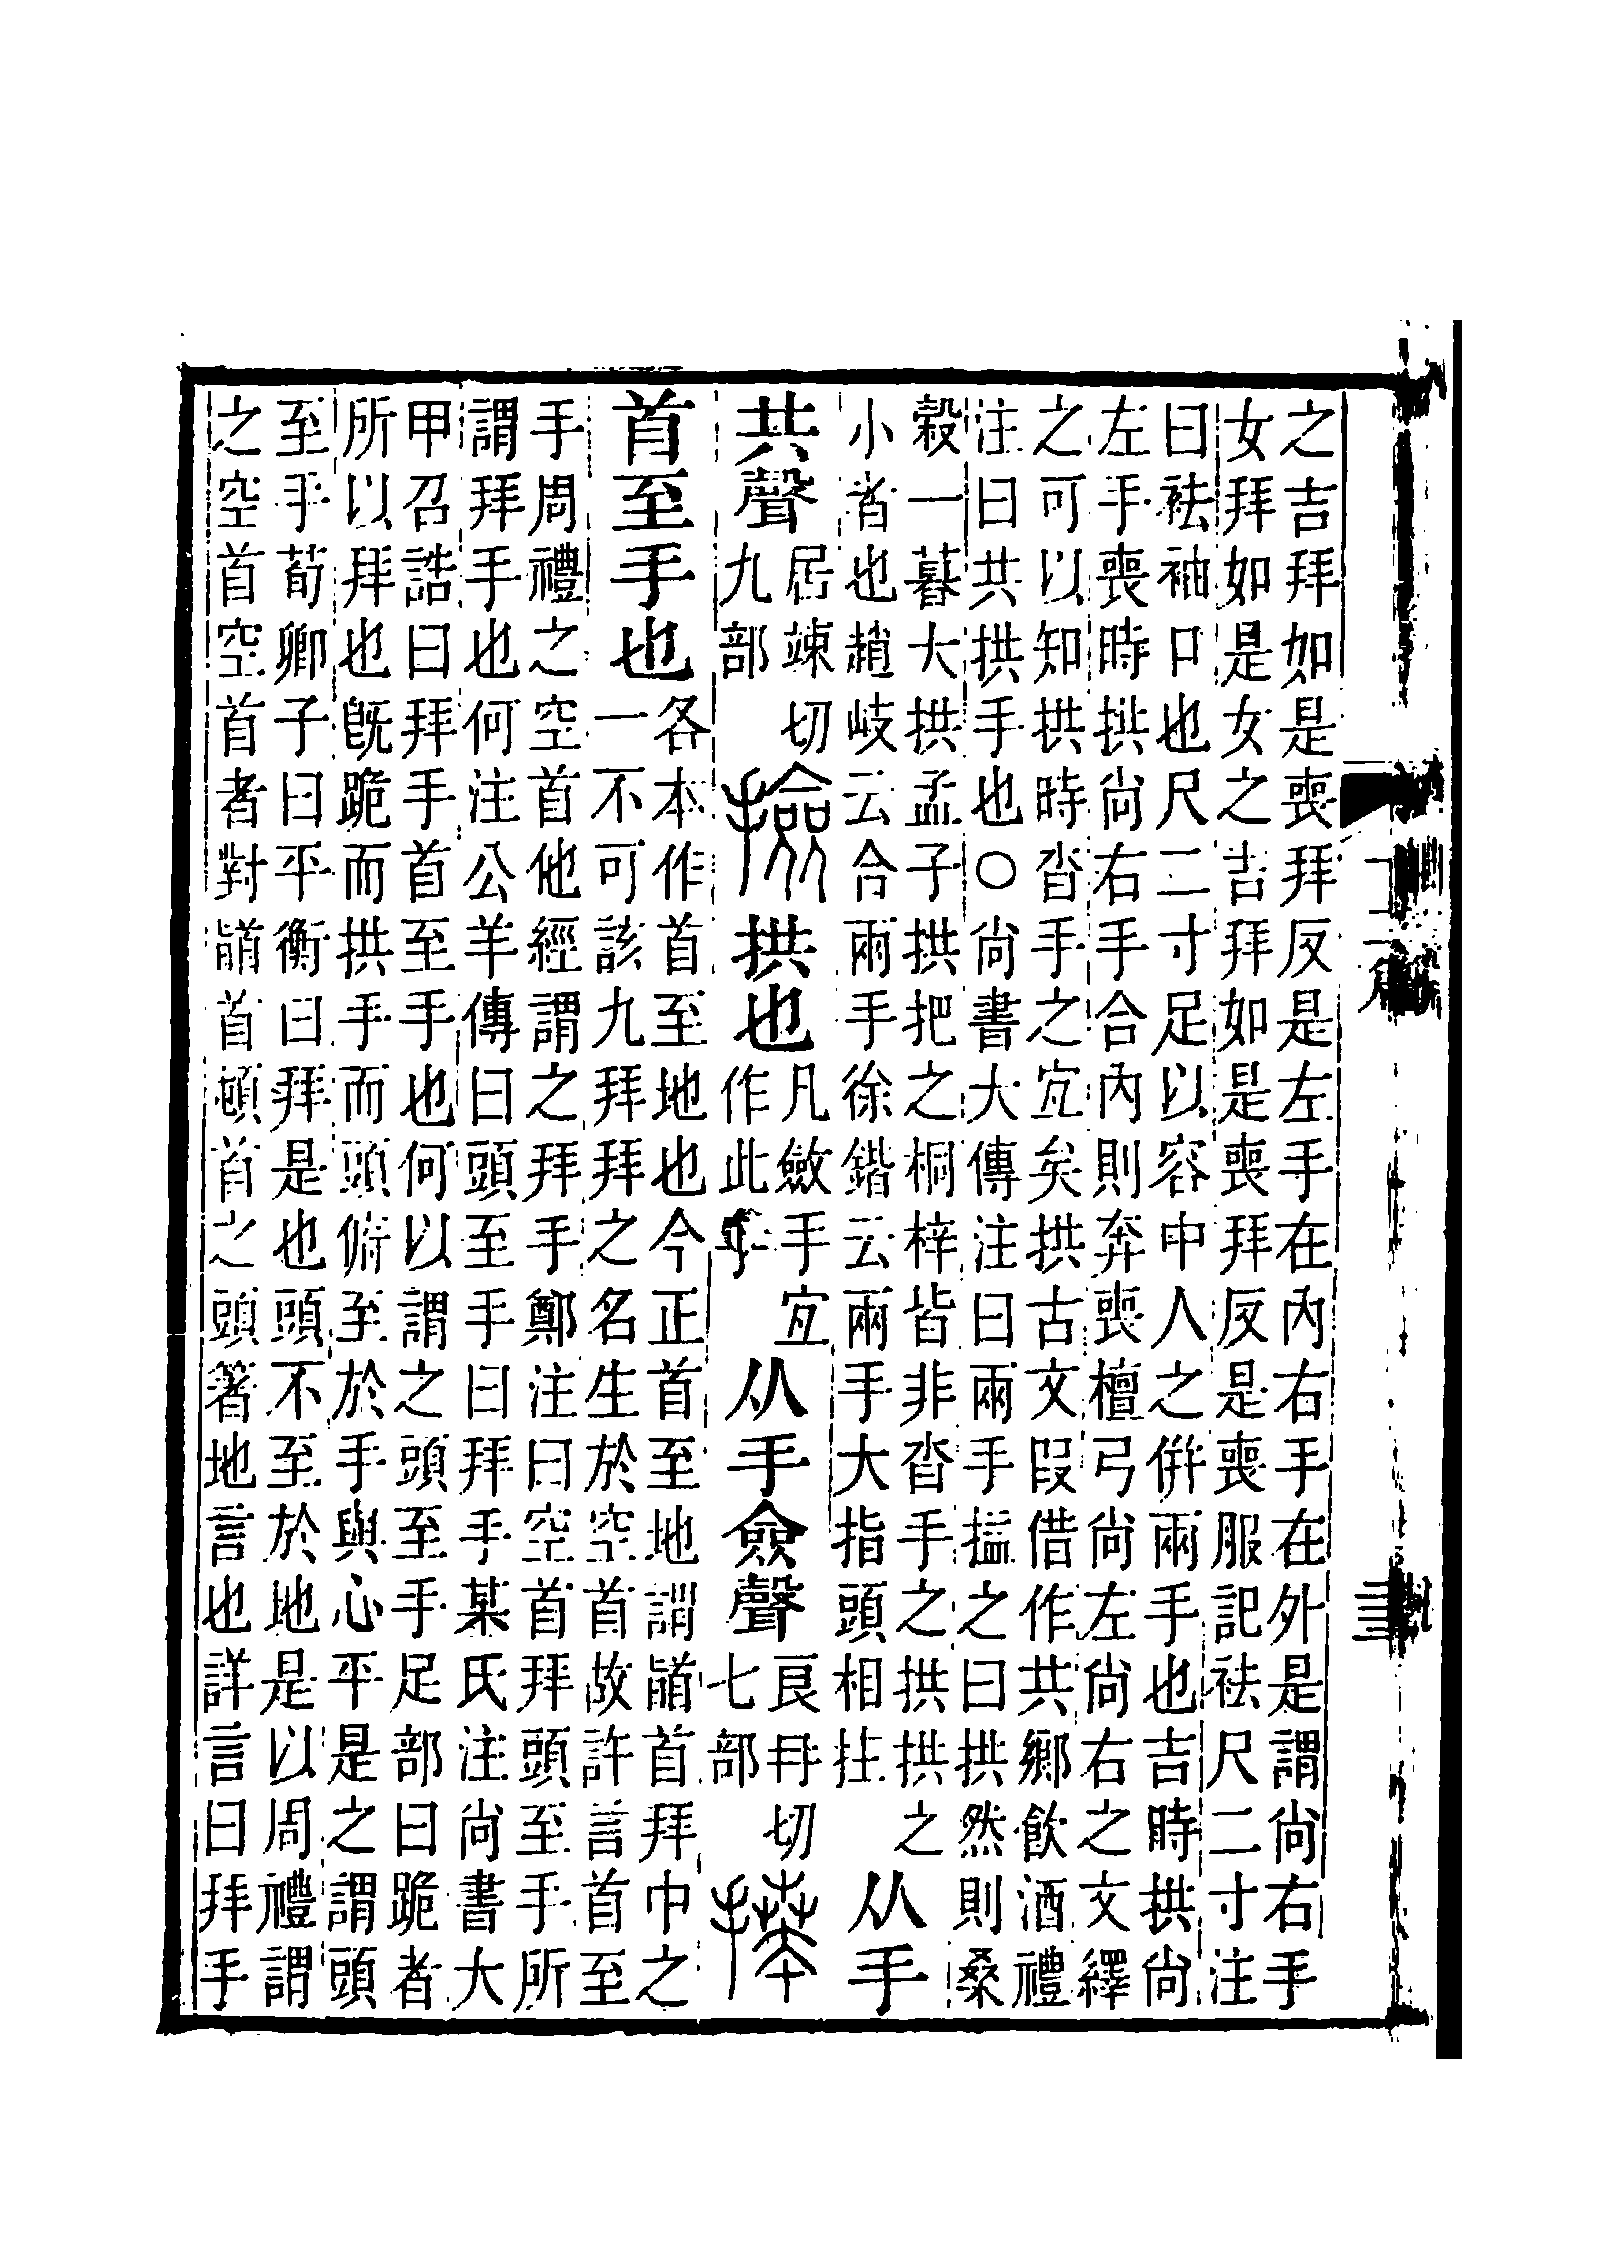 之吉拜如是喪拜反是左手在內右手在外是謂尚右手
女拜如是女之吉拜如是喪拜反是喪服記袪尺二寸注
曰袪袖口也尺二寸足以容中人之倂兩手也吉時拱尚
左手喪時拱尚右手合內則奔喪檀弓尚左尚右之文繹
之可以知拱時沓手之宐矣拱古文叚借作共鄉飮酒禮
注曰共拱手也○尚書大傳注曰兩手搤之曰拱然則桑
榖一暮大拱孟子拱把之桐梓皆非沓手之拱拱之
小者也趙岐云合兩手徐鍇云兩手大指頭相拄
从手
共聲
居竦切
九部
撿
拱也
凡斂手宐
作此字
从手僉聲
良冉切
七部
𢷎
首至手也
各本作首至地也今正首至地謂䭫首拜中之
一不可該九拜拜之名生於空首故許言首至
手周禮之空首他經謂之拜手鄭注曰空首拜頭至手所
謂拜手也何注公羊傳曰頭至手曰拜手某氏注尚書大
甲召誥曰拜手首至手也何以謂之頭至手足部曰跪者
所以拜也旣跪而拱手而頭俯至於手與心平是之謂頭
至手荀卿子曰平衡曰拜是也頭不至於地是以周禮謂
之空首空首者對䭫首頓首之頭箸地言也詳言曰拜手